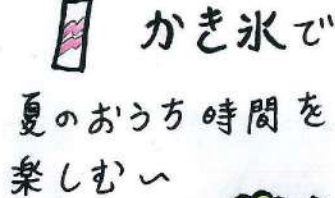 かき氷で
夏のおうち時間を
楽しむ〜